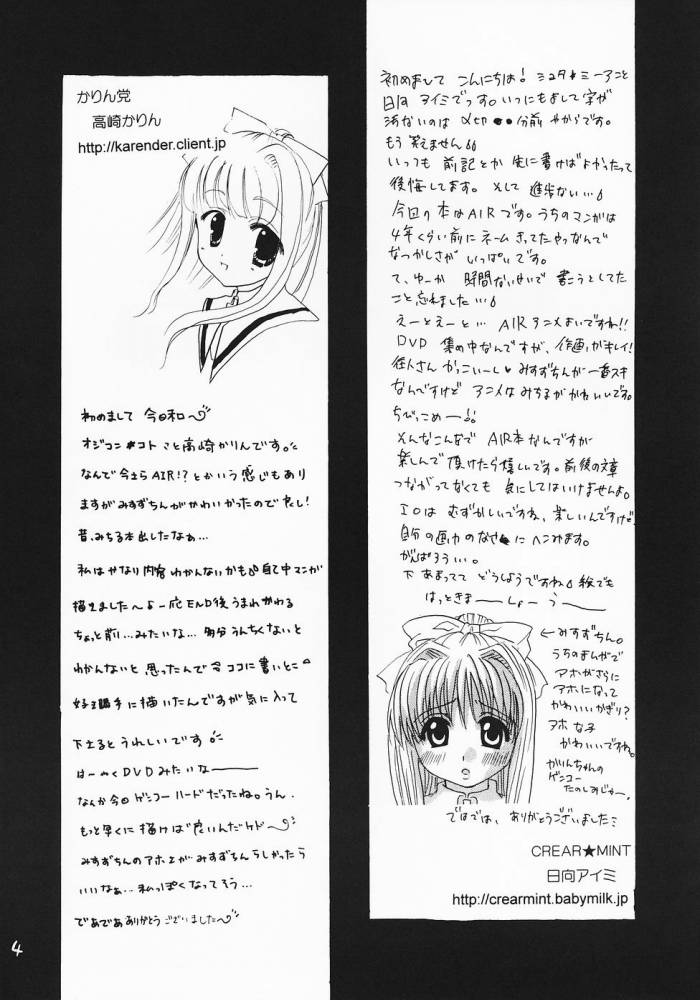 初めまして こんにちは! ミュタ★ミーアこと
日向 アイミでっす。いつにもまして字が
汚ないのは 〆切 ●●分前 やからです。
もう 笑えません
いっつも 前記とか 先に書けばよかったって
後悔してます。 そして 進歩ない…
今回の本はAIRです。うちのマンガは
4年くらい前にネーム きってたやつなんで
なつかしさが いっぱいです。
て、ゆーか 時間ないせいで 書こうとしてた
こと忘れました…
えーとえーと… AIR アニメよいですね!!
DVD 集め中なんですが、作画がキレイ!
往人さん かっこいーし みすずちんが一番スキ
なんですけど アニメは みちるがかわいいです。
ちびっこめー!!
そんなこんなで AIR本なんですが
楽しんで 頂けたら嬉しいです。前後の文章
つながってなくても 気にしてはいけませんよ。
エロは むずかしいですね、楽しいんですけど
自分の画力のなさにへこみます。
がんばろうぃ。
下 あまってて どうしようですね 絵でも
はっときまーしょーうー
←みすずちん。
うちのまんがで
アホがさらに
アホになって
かわいいかぎり?
アホな子
かわいいですね。
かりんちゃんの
ゲンコー
たのしみじゃー。
ではでは、ありがとうございました
CREAR★MINT
日向アイミ
http://crearmint.babymilk.jp
かりん党
高崎かりん
http://karender.client.jp
初めまして 今日和
オジコン#コト さと高崎かりんです。
なんで今さらAIR!?とかいう感じもあり
ますがみすずちんがかわいかったので良し!
昔、みちる本出したなぁ…
私はかなり内容わかんないかも 自己中マンガ
描きました〜よ 一応END後うまれかわる
ちょっと前…みたいな… 多分うんちくないと
わかんないと 思ったんで今ココに書いとこ
好き勝手に描いたんですが気に入って
下さるとうれしいです。
はーやくDVDみたいなー
なんか今回ゲンコーハードだったね。うん。
もっと早くに描けば良いんだケド
みすずちんのアホ上がみすずちんらしかったら
いいなぁ…私っぽくなってそう…
であであ ありがとうございました
4